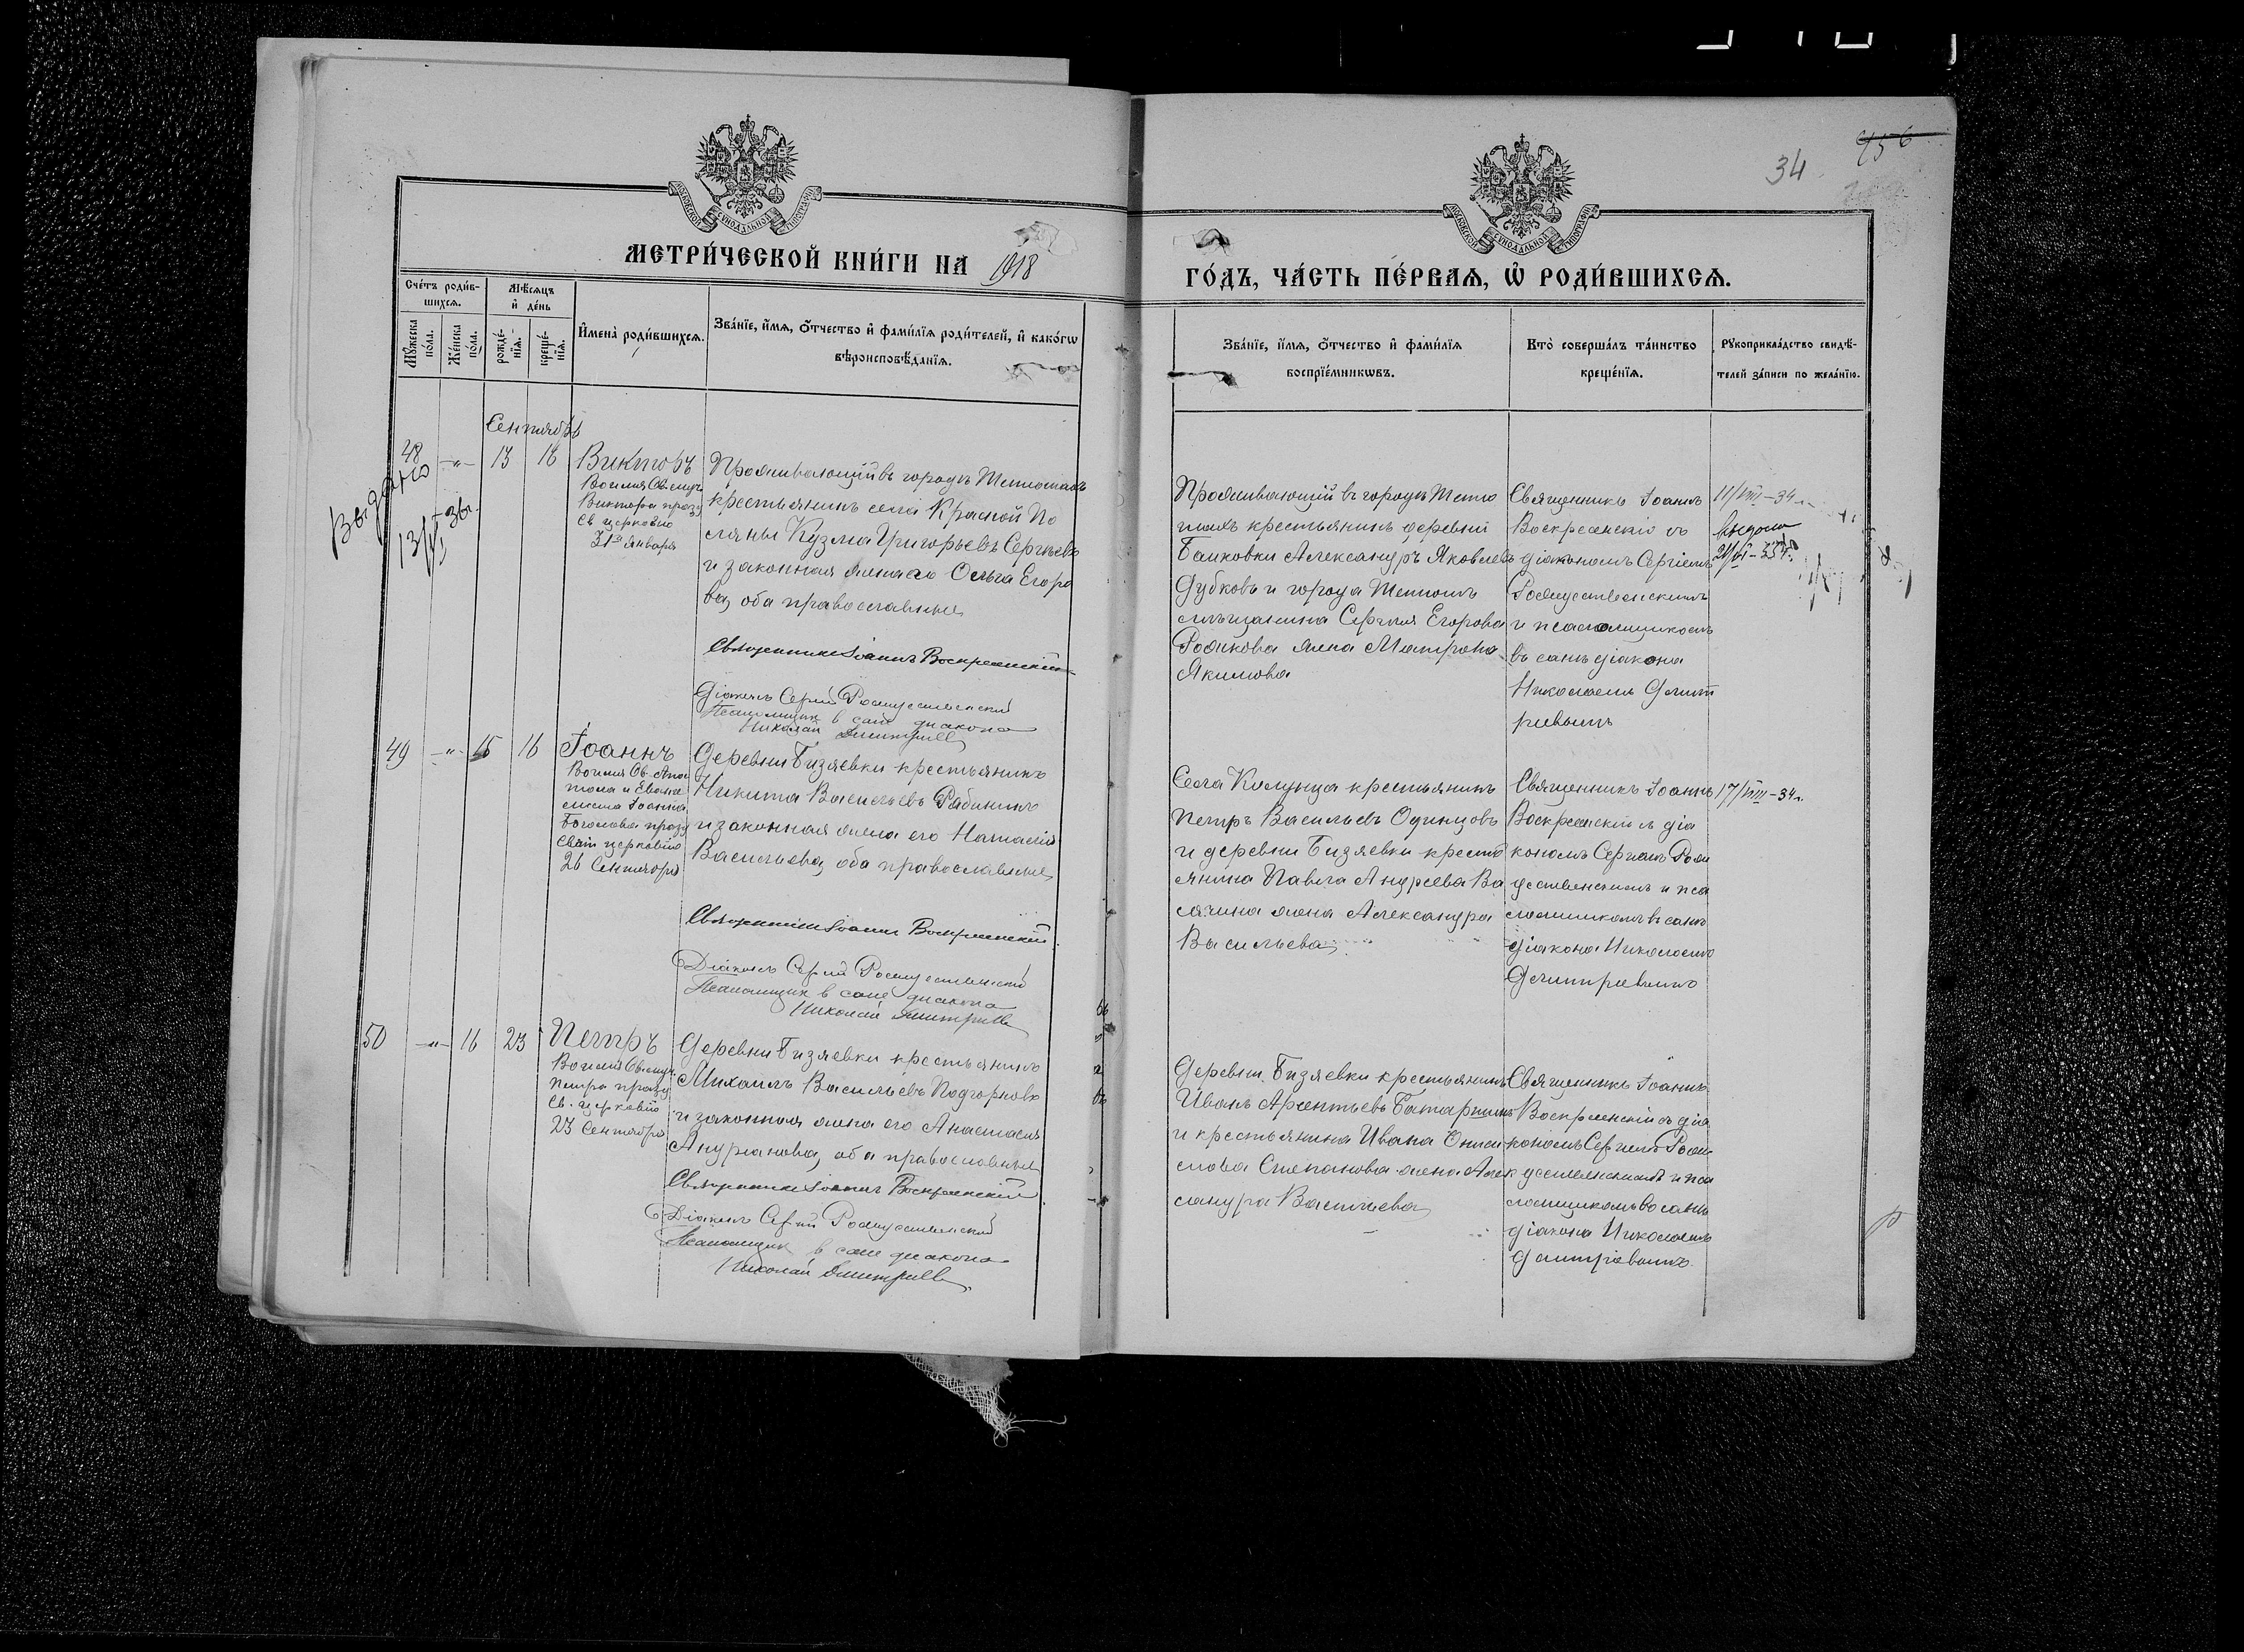 34
456
МОСКОВСКОЙ СУНОДАЛЬНОЙ ТИПОГРАФІИ
МОСКОВСКОЙ СУНОДАЛЬНОЙ ТИПОГРАФІИ
МЕТРИ́ЧЕСКОЙ КНИ́ГИ НА 1918
ГО́ДЪ, ЧА́СТЬ ПЕ́РВАѦ, Ѡ҆ РОДИ́ВШИХСѦ.
Сче́тъ роди́в-
шихсѧ.
Мѣ́сѧцъ
и҆ де́нь
Мꙋ́жеска
по́ла.
Же́нска
по́ла.
рожде́-
нїѧ.
креще́-
нїѧ.
И҆мена̀ роди́вшихсѧ.
Зва́нїе, и҆́мѧ, ѻ҆́тчество и҆ фами́лїѧ роди́телей, и҆ како́гѡ
вѣроисповѣ́данїѧ.
Зва́нїе, и҆́мѧ, ѻ҆́тчество и҆ фами́лїѧ
воспрїе́мникѡвъ.
Кто̀ соверша́лъ та́инство
креще́нїѧ.
Рꙋкоприкла́дство свидѣ́-
телей за́писи по жела́нїю.
Сентябрь
48 —"— 13 16
Выдано
Викторъ
Во имя Св. муч.
Виктора празд
Св церковію
31го Января
Проживающій въ городѣ
крестьянинъ села Красной По
ляны Кузма Григорьевъ Сергѣевъ
и законная жена его Ольга Егоро
ва, оба православные
Священникъ Іоаннъ Воскресенскій
Діаконъ Сергій Рождественскій
Псаломщик в сане диакона
Николай Дмитриев
Проживающій въ городѣ
крестьянинъ деревни
Александръ Яковлевъ
Дубковъ и города
мѣщанина Сергѣя Егорова
жена Матрона
Якимова
Священникъ Іоаннъ
Воскресенскій съ
діакономъ Сергіемъ
Рождественскимъ
и псаломщикомъ
въ санѣ діакона
Николаемъ Дмит
ріевымъ
11/VIII-34 г.
49 —"— 15 16
Іоаннъ
Во имя Св. Апос
тола и Еванге
листа Іоанна
Богослова празд
Свят церковію
26 Сентября
Деревни Бизяевки крестьянинъ
Никита Васильевъ Рябининъ
и законная жена его Наталія
Васильева, оба православные
Священникъ Іоаннъ Воскресенскій
Діаконъ Сергій Рождественскій
Псаломщик в сане диакона
Николай Дмитриев
Села крестьянинъ
Петръ Васильевъ Одинцовъ
и деревни Бизяевки кресть
янина Павла Андреева Ва
жена Александра
Васильева
Священникъ Іоаннъ
Воскресенскій съ діа
кономъ Сергіемъ Рож
дественскимъ и пса
ломщикомъ въ санѣ
діакона Николаемъ
Дмитріевымъ
17/VIII-34 г.
50 —"— 16 23
Петръ
Во имя Св. муч.
Петра празд
Св. церковію
23 Сентября
Деревни Бизяевки крестьянинъ
Михаилъ Васильевъ Подгорновъ
и законная жена его Анастасія
Андріанова, оба православные
Священникъ Іоаннъ Воскресенскій
Діаконъ Сергій Рождественскій
Псаломщик в сане диакона
Николай Дмитриев
Деревни Бизяевки крестьянинъ
Иванъ Арсентьевъ
и крестьянина Ивана Ониси
мова Степанова жена Алек
сандра Васильева
Священникъ Іоаннъ
Воскресенскій съ діа
кономъ Сергіемъ Рож
дественскимъ и пса
ломщикомъ въ санѣ
діакона Николаемъ
Дмитріевымъ